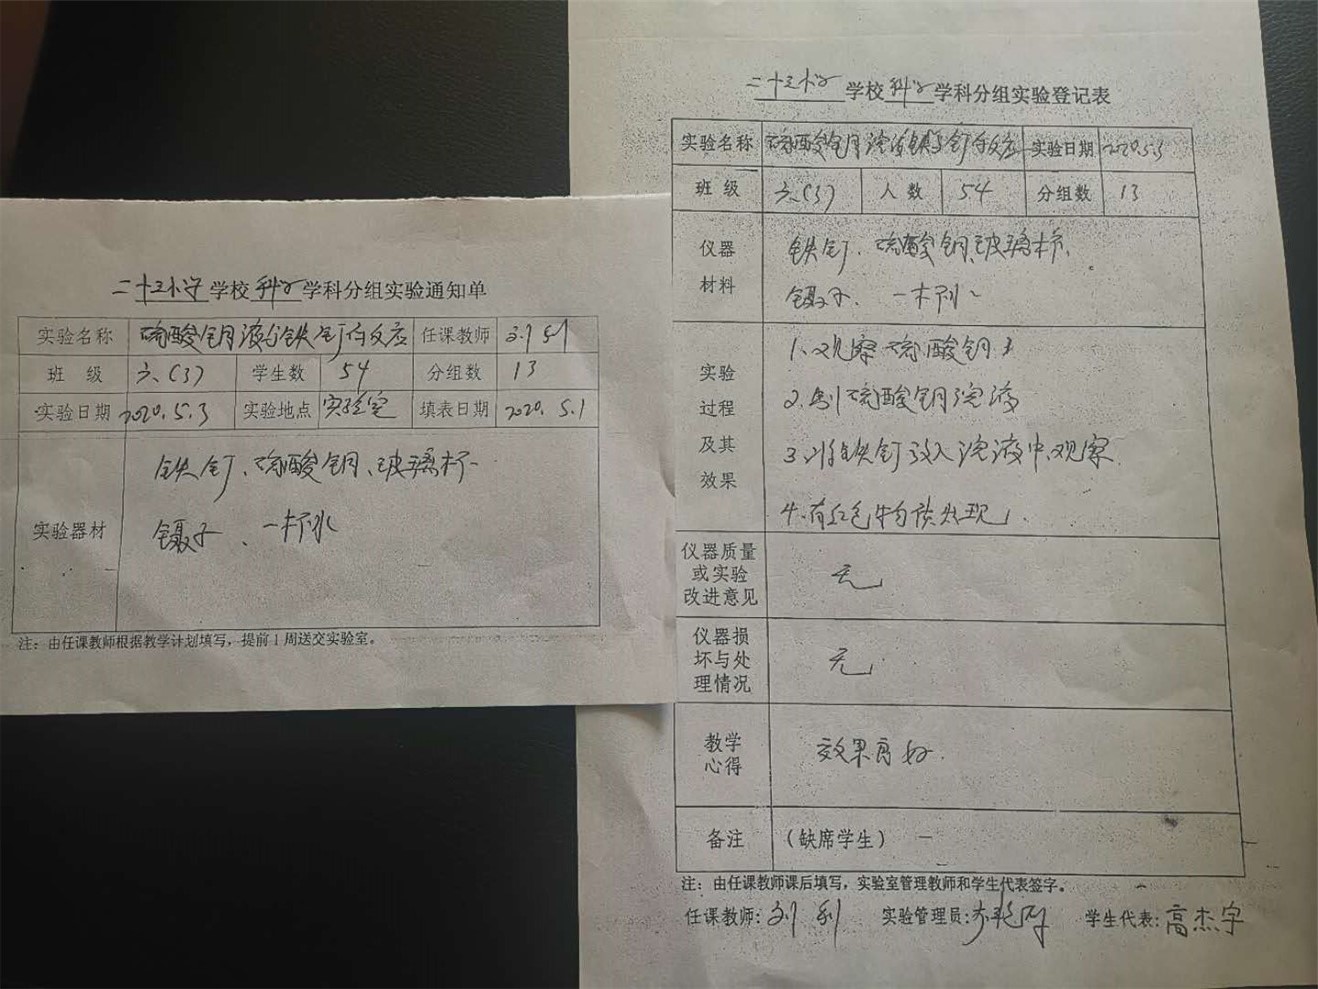 二十三小学学校科学学科分组实验通知单
实验名称 硫酸铜溶液与铁钉的反应 任课教师
班 级 六.(3) 学生数 54 分组数 13
实验日期 2020.5.3 实验地点 实验室 填表日期 2020.5.1
实验器材
铁钉、硫酸铜、玻璃杯
镊子、一杯水
注：由任课教师根据教学计划填写，提前1周送交实验室。
二十三小学学校科学学科分组实验登记表
实验名称 硫酸铜溶液与铁钉的反应 实验日期 2020.5.3
班 级 六.(3) 人 数 54 分组数 13
仪器
材料
铁钉、硫酸铜、玻璃杯、
镊子、一杯水
实验
过程
及其
效果
1、观察硫酸铜
2、制硫酸铜溶液
3、将铁钉放入溶液中、观察
4、有红色物质出现
仪器质量
或实验
改进意见
无
仪器损
坏与处
理情况
无
教学
心得
效果良好.
备注 （缺席学生） 一
注：由任课教师课后填写，实验室管理教师和学生代表签字。
任课教师: 刘利 实验管理员: 学生代表: 高杰宇